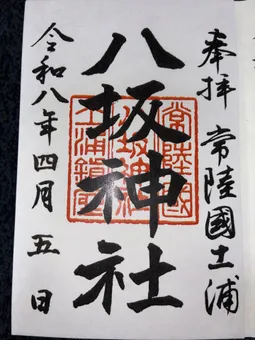 奉拝 常陸國土浦
八坂神社
令和八年四月五日
常陸國
八坂神社
土浦鎮守